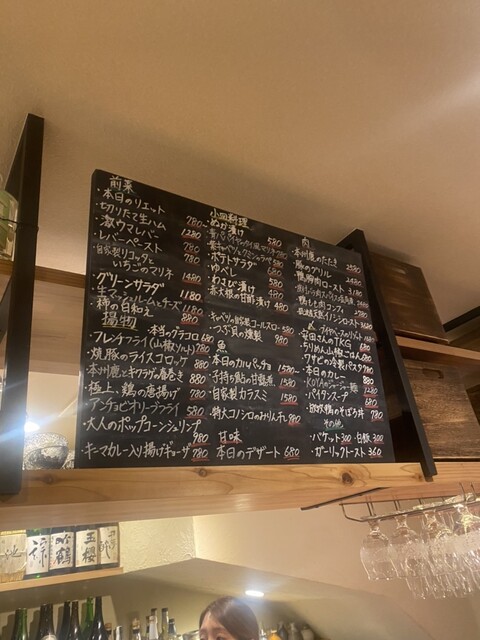 前菜
・本日のリエット 780~
・切りたて生ハム 1280
・激ウマレバー
レバーペースト 780
・自家製リコッタと
いちごのマリネ 780
・グリーンサラダ 1480
・生マッシュルームとチーズ 1180
・柿の白和え 880
揚物
本当のグラコロ 680
フレンチフライ(山椒ソルト) 780
・焼豚のライスコロッケ 780
・本州鹿とキクラゲの春巻き 880
・極上、鶏の唐揚げ 780
・アンチョビオリーブフライ 580
・大人のポップコーンシュリンプ 980
・キーマカレー入り揚げギョーザ 780
小皿料理
・ぬか漬け 580
・ポテトサラダ 680
・ゆべし 580
・わさび漬け 480
・赤大根の甘酢漬け 480
・キャベツの自家製コールスロー 580
・つぶ貝の燻製 980
魚
・本日のカルパッチョ 1580~
・子持ち鮎の甘露煮 1580
・自家製カラスミ 1580
・特大コノシロのみりん干し 980
甘味
本日のデザート 680
肉
・本州鹿のたたき 2480
・豚のグリル 2580
・鴨胸肉ロースト 3180
・鴨もも肉コンフィ
〆
・安田さんのTKG 680
・ちりめん山椒ごはん 680
・ワサビの冷製パスタ 780
・本日のカレー 880
・KOYAのジャージャー麺 1280
・パイタンスープ 680
その他
・バケット 300 ・白飯 300
・ガーリックトースト 360
吟鶴
王櫻